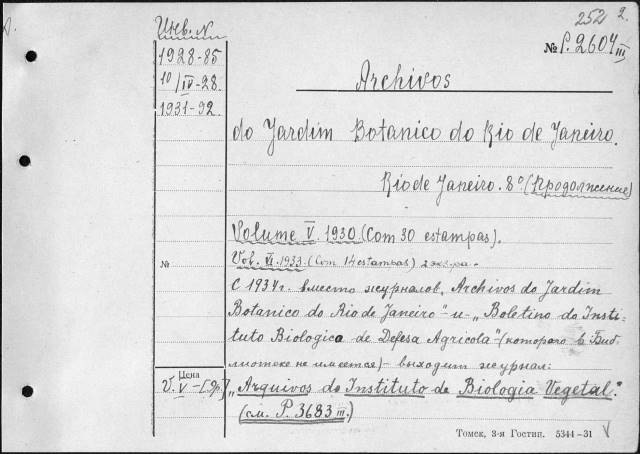 252 2.
Инв. N
№ P. 2604 III
1928-85
10/IV-28.
1931-92.
Archivos
do Jardim Botanico do Rio de Janeiro.
Rio de Janeiro. 8° (Продолжение)
Volume V. 1930. (Com 30 estampas).
Vol. VI. 1933. (Com 14 estampas) 2 экз-ра.
№
С 1934 г. вместо журналов „Archivos do Jardim
Botanico do Rio de Janeiro" и „Boletino do Insti-
tuto Biologica de Defesa Agricola" (которого в Биб
лиотеке не имеется) - выходит журнал:
Цена
V. V -
„Arquivos do Instituto de Biologia Vegetal."
(см. P. 3683 III.)
Томск, 3-я Гостип. 5344-31 V